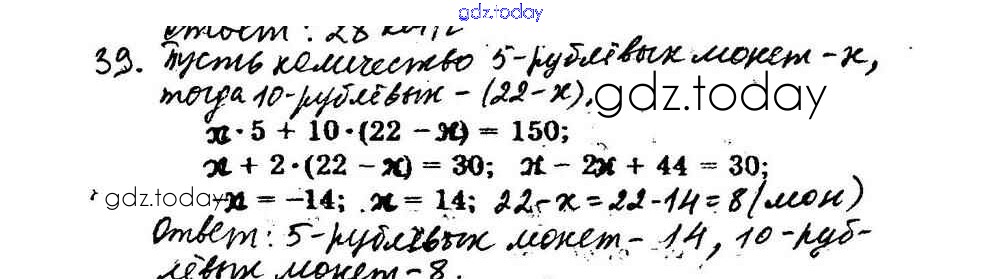 gdz.today
Ответ: 28
39. Пусть количество 5-рублёвых монет - x,
тогда 10-рублёвых - (22-x).
gdz.today
x·5 + 10·(22 − x) = 150;
x + 2·(22 − x) = 30; x − 2x + 44 = 30;
gdz.today
-x = −14; x = 14; 22-x=22-14=8(мон)
Ответ: 5-рублёвых монет - 14, 10-руб-
лёвых монет - 8.